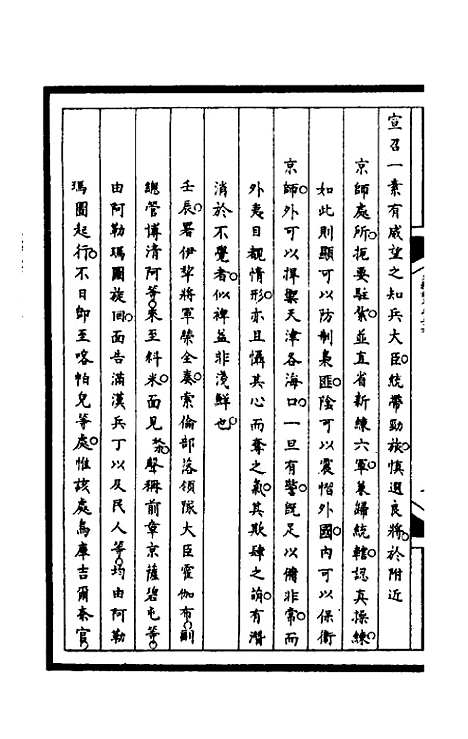 宣召一素有威望之知兵大臣統帶勁旅慎選良將於附近
京師處所扼要駐紮並直省新練六軍兼歸統轄認真操練
如此則顯可以防制梟匪陰可以震慴外國內可以保衛
京師外可以捍禦天津各海口一旦有警既足以備非常而
外夷目覩情形亦且懾其心而奪之氣其欺肆之萌有潛
消於不覺者似裨益非淺鮮也
壬辰署伊犂將軍榮全奏索倫部落領隊大臣霍伽布副
總管博清阿等來至料米面見奴才聲稱前章京薩碧屯等
由阿勒瑪圖旋回面告滿漢兵丁以及民人等均由阿勒
瑪圖起行不日即至喀帕兒等處惟該處烏庫吉爾泰官